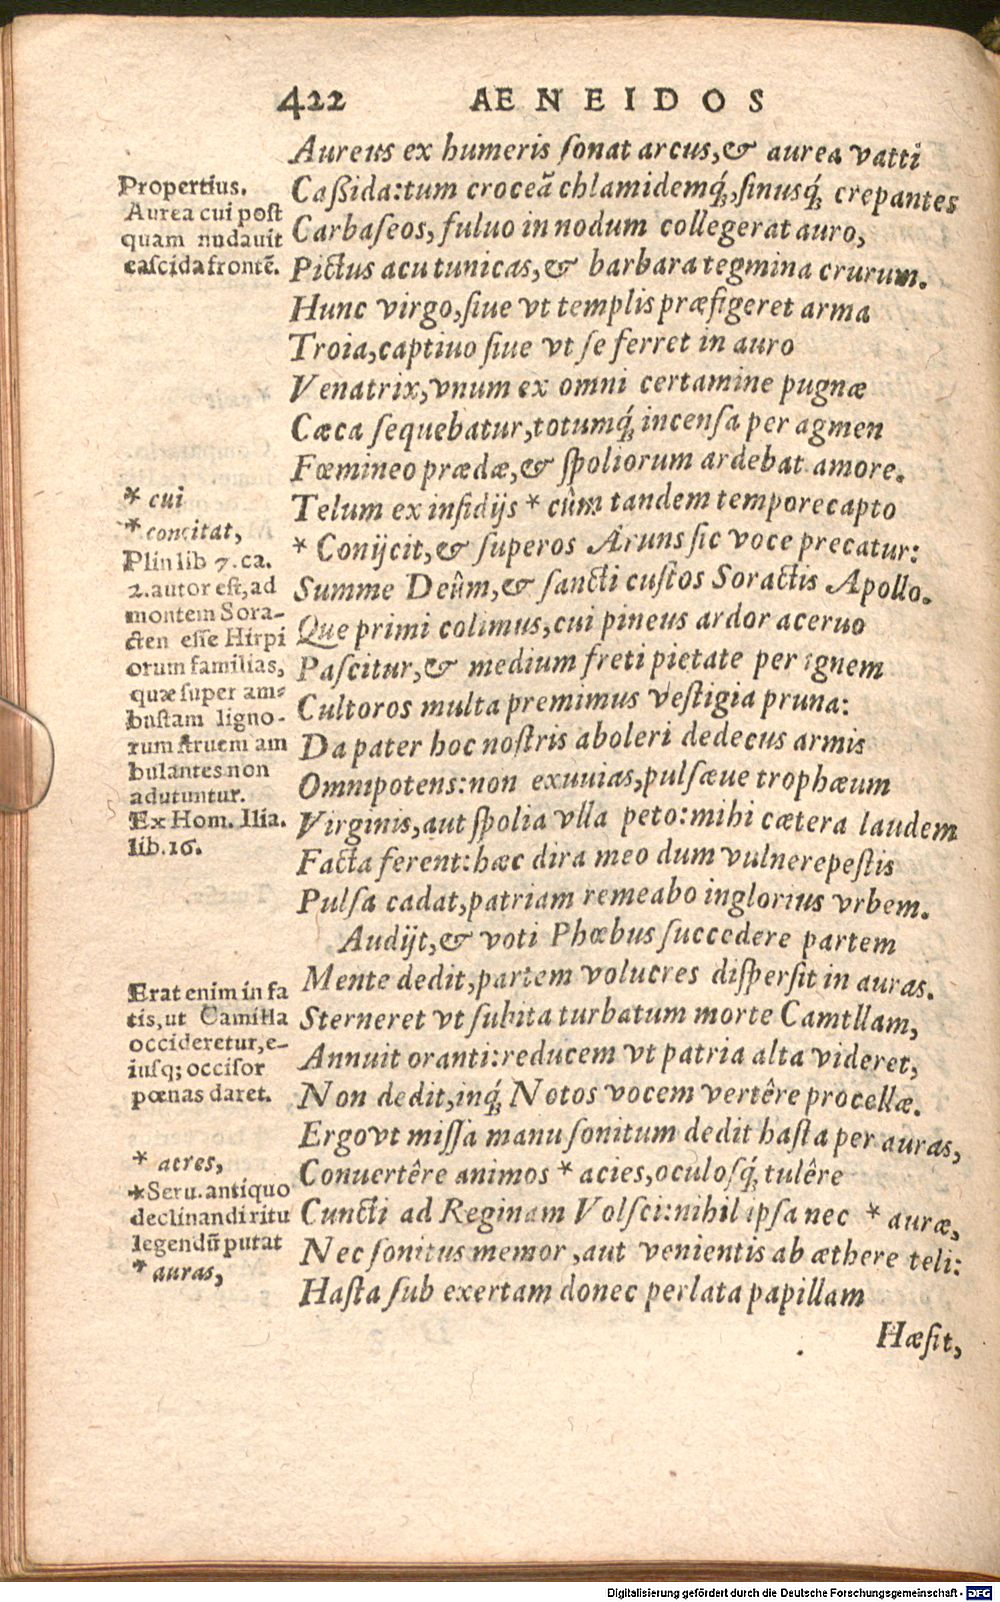 422 AENEIDOS
Aureus ex humeris ſonat arcus,& aurea vatti
Caßida:tum croceā chlamidemq́;,ſinusq́; crepantes
Carbaſeos, fuluo in nodum collegerat auro,
Pictus acu tunicas,& barbara tegmina crurum.
Hunc virgo,ſiue vt templis præfigeret arma
Troia,captiuo ſiue vt ſe ferret in auro
Venatrix,vnum ex omni certamine pugnæ
Cæca ſequebatur,totumq́; incenſa per agmen
Fœmineo prædæ,& ſpoliorum ardebat amore.
Telum ex inſidijs * cûm tandem tempore capto
* Conijcit,& ſuperos Aruns ſic voce precatur:
Summe Deûm,& ſancti cuſtos Soractis Apollo.
Que primi colimus,cui pineus ardor aceruo
Paſcitur,& medium freti pietate per ignem
Cultoros multa premimus veſtigia pruna:
Da pater hoc noſtris aboleri dedecus armis
Omnipotens:non exuuias,pulſæue trophæum
Virginis,aut ſpolia vlla peto:mihi cætera laudem
Facta ferent:hæc dira meo dum vulnere peſtis
Pulſa cadat,patriam remeabo inglorius vrbem.
Audijt,& voti Phœbus ſuccedere partem
Mente dedit,partem volucres diſperſit in auras.
Sterneret vt ſubita turbatum morte Camtllam,
Annuit oranti:reducem vt patria alta videret,
Non dedit,inq́; Notos vocem vertêre procellæ.
Ergo vt miſſa manu ſonitum dedit haſta per auras,
Conuertêre animos * acies,oculoſq́; tulêre
Cuncti ad Reginam Volſci:nihil ipſa nec * auræ,
Nec ſonitus memor ,aut venientis ab æthere teli:
Haſta ſub exertam donec perlata papillam
Hæſit,
Propertius.
Aurea cui post
quam nudauit
caſcida frontē.
* cui
* concitat,
Plin lib 7. ca.
2. autor eſt, ad
montem Sora-
cten eſſe Hirpi
orum familias,
quæ ſuper am-
buſtam ligno-
rum ſtruem am
bulantes non
adutuntur.
Ex Hom. Ilia.
lib.16.
Erat enim in fa
tis,ut Camilla
occideretur,e-
iuſq; occiſor
pœnas daret.
* acres,
*Seru. antiquo
declinandi ritu
legendū putat
* auras,
Digitalisierung gefördert durch die Deutsche Forschungsgemeinschaft - DFG